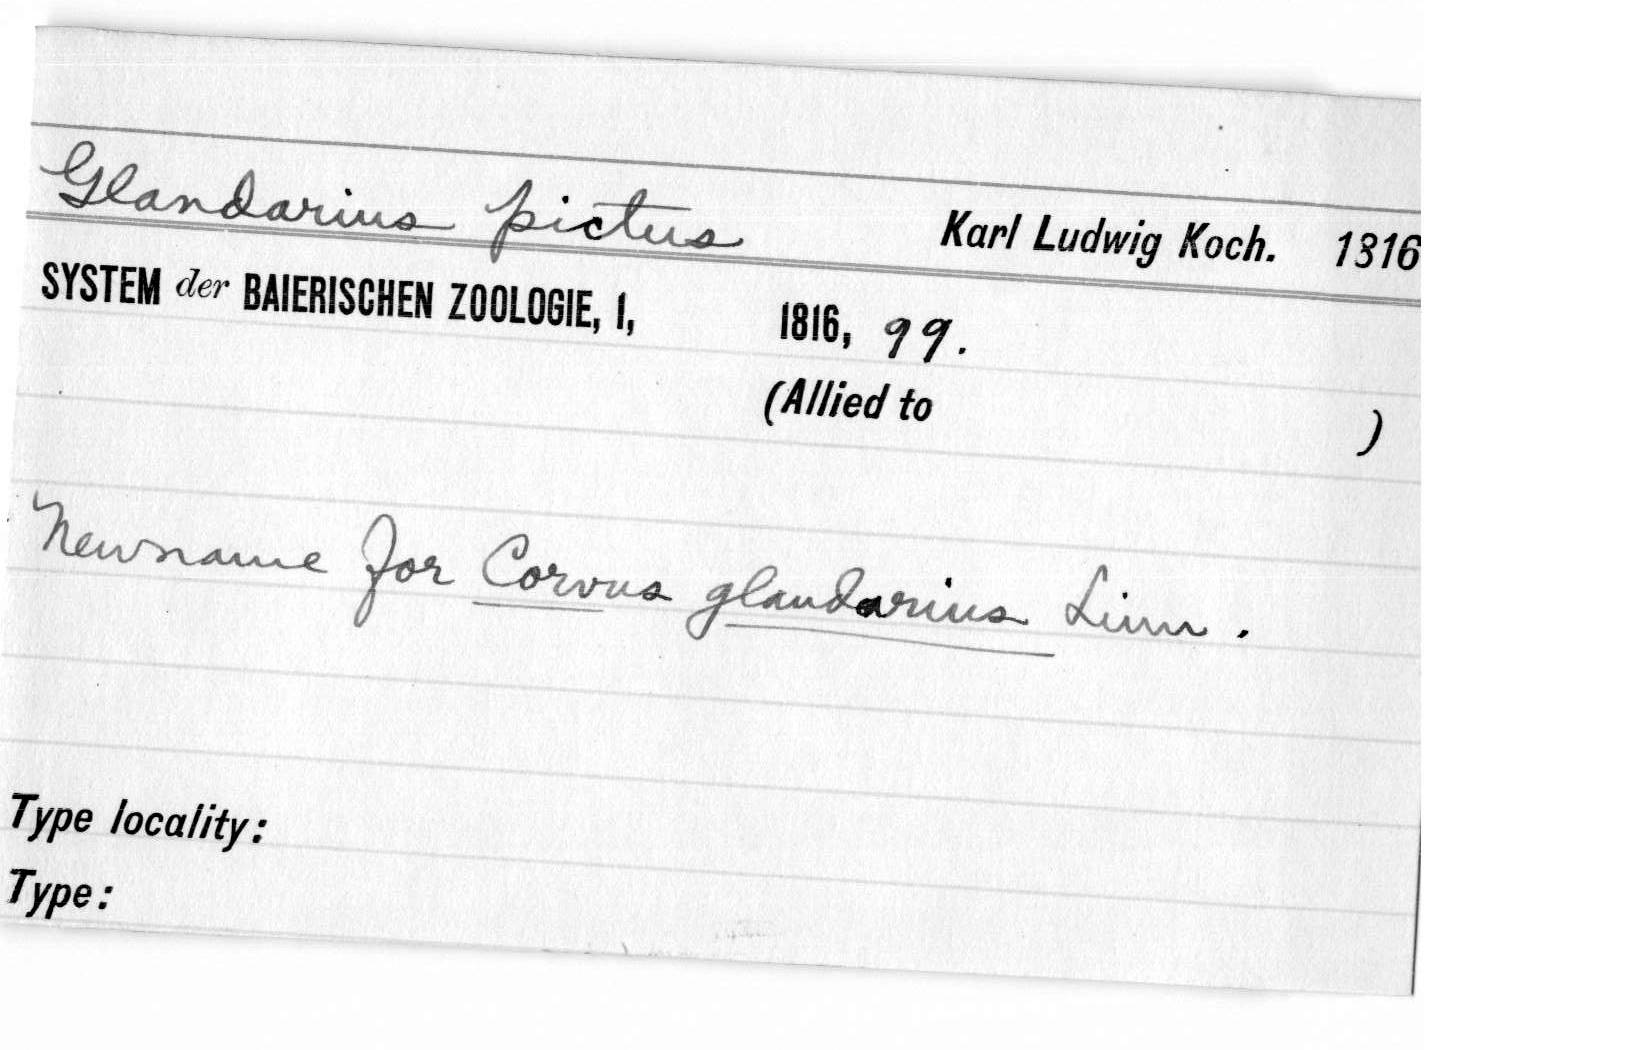 Glandarius pictus Karl Ludwig Koch. 1816
SYSTEM der BAIERISCHEN ZOOLOGIE, I, 1816, 99.
(Allied to )
New name for Corvus glandarius Linn.
Type locality:
Type: